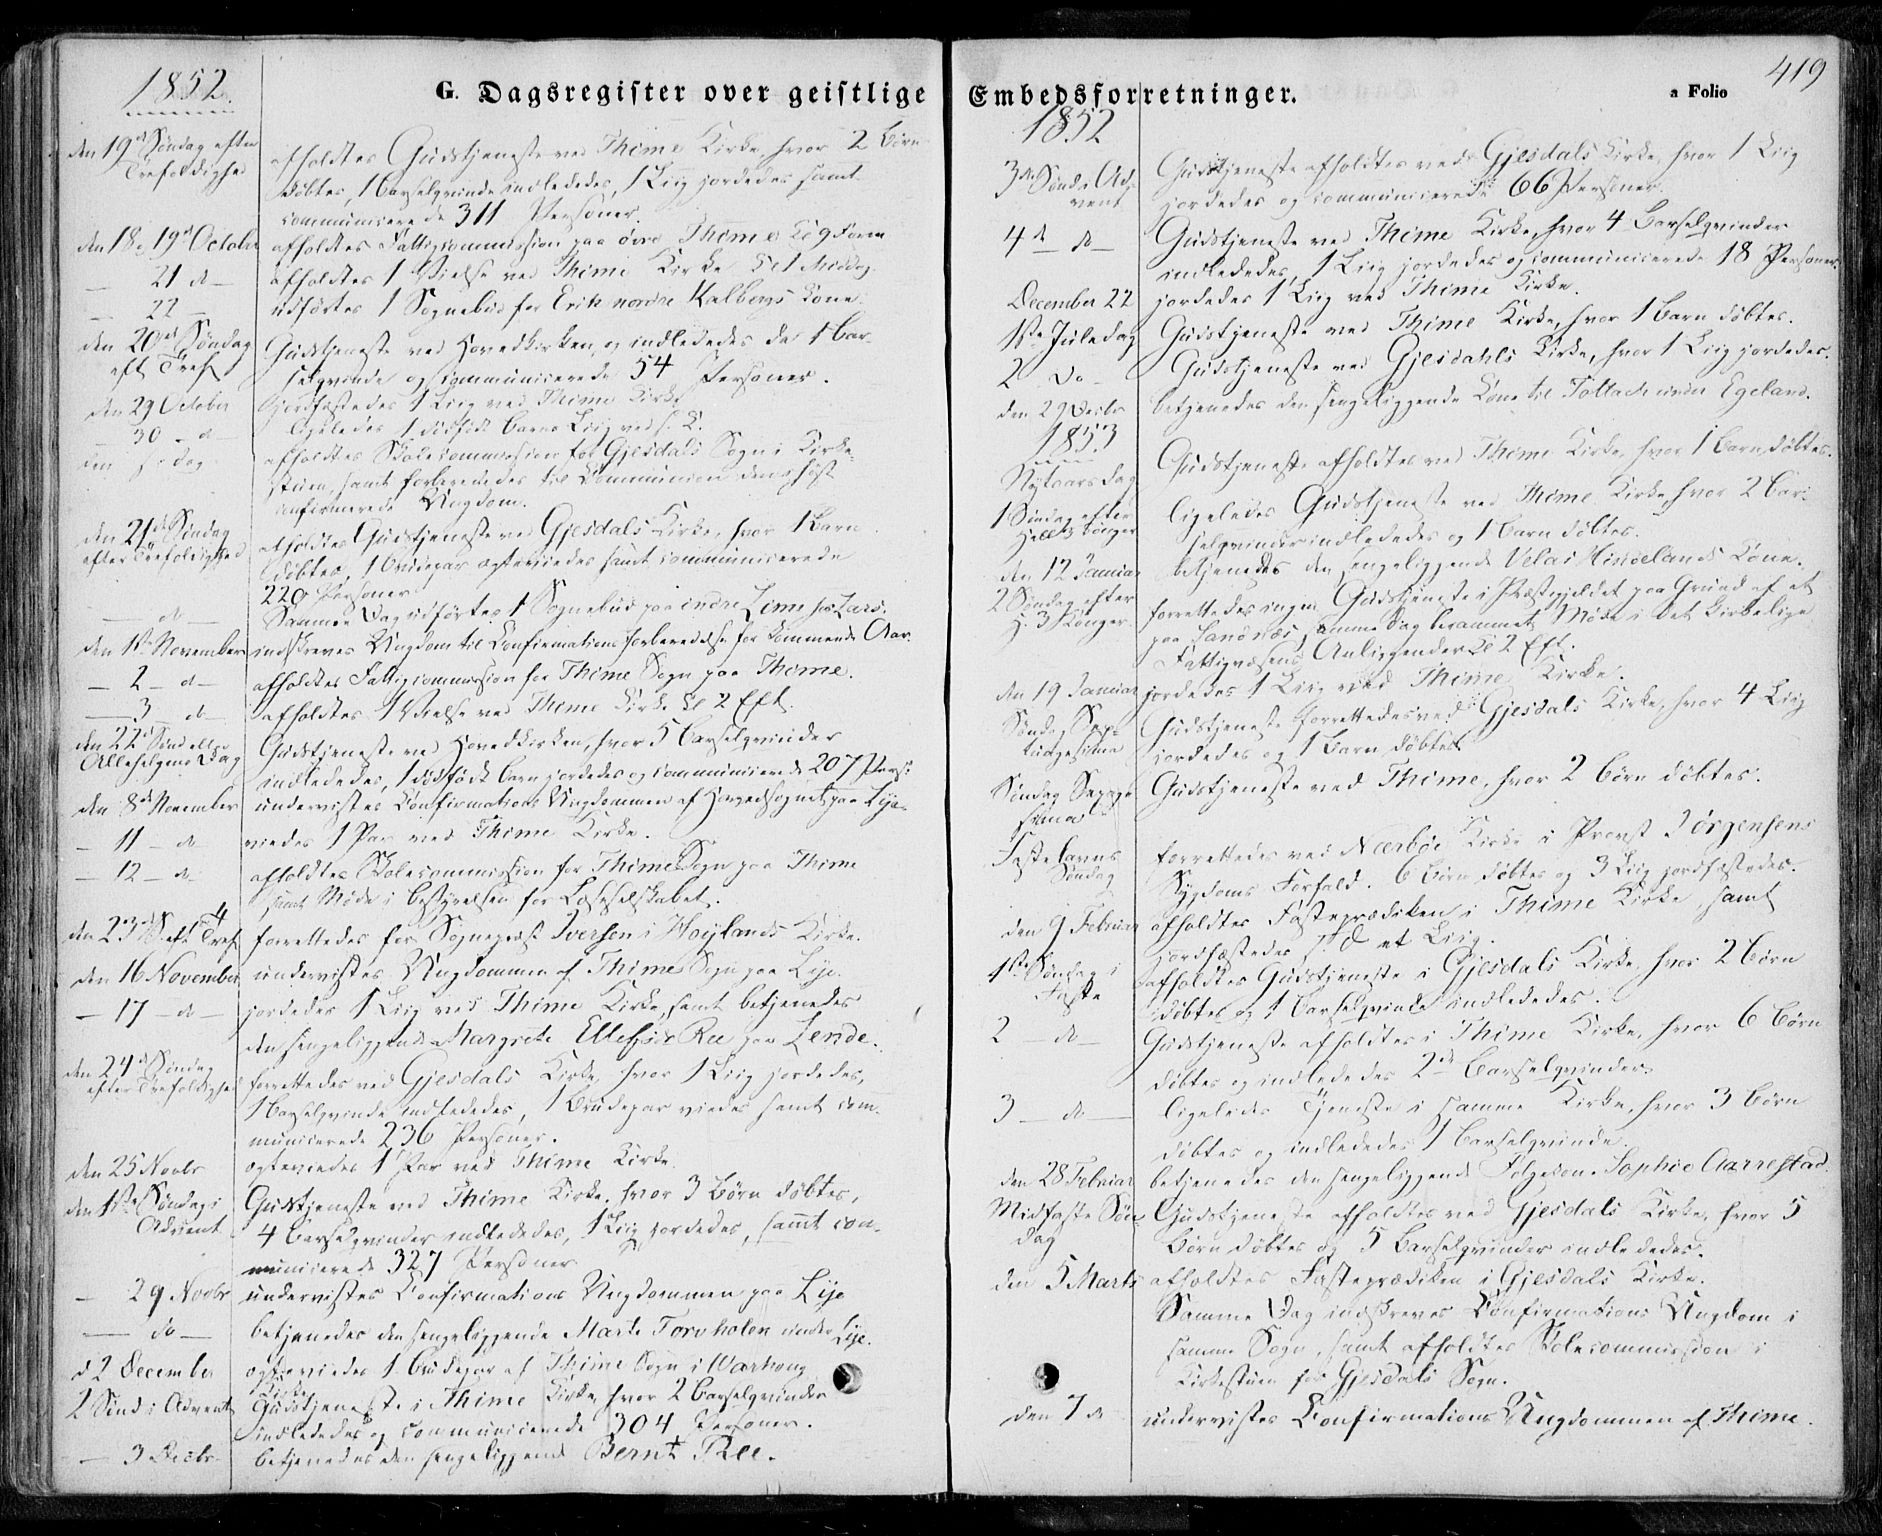 1852.
G. Dagsregister over geistlige
den 19d Søndag efter
Trefoldighed
afholdtes Gudstjeneste ved Thime Kirke hvor 2 Børn
døbtes, 1 Barselqvinde indlededes, 1 Liig jordedes samt
communicerede 311 Personer.
den 18 & 19d October afholdtes Fattigcommission paa øvre Thime Kl 9 Form
— 21 d — afholdtes 1 Vielse ved Thime Kirke Kl 1 Middag.
— 22 — udførtes 1 Sognebud for Erik nordre Kalbergs Kone.
den 20de Søndag
eft Tref
Gudstjeneste ved Hovedkirken og indlededes der 1 Bar-
selqvinde og communicerede 54 Personer.
den 29 October jordfæstedes 1 Liig ved Thime Kirke
— 30 — d — ligeledes 1 dødfødt Barns Liig ved s. K.
den s. dag afholdtes Skolecommission for Gjesdals Sogn i Kirke-
stuen, samt forberededes til Communion den i høst
confirmerede Ungdom.
den 21d Søndag
efter Trefoldighed
afholdtes Gudstjeneste ved Gjesdals Kirke, hvor 1 Barn
døbtes, 1 Brudepar ægteviedes samt communicerede
220 Personer.
— d — Samme Dag udførtes 1 Sognebud paa indre Lime hos Lars.
den 1ste November indskreves Ungdom til Confirmations Forberedelse for kommende Aar.
— 2 — d — afholdtes Fattigcommission for Thime Sogn paa Thime.
— 3 d — afholdtes 1 Vielse ved Thime Kirke Kl 2 Eft.
den 22d Sønd eller
Allehelgens Dag
Gudstjeneste ved Hovedkirken, hvor 5 Barselqvinder
indlededes, 1 dødfødt Barn jordedes og communicerede 207 Pers.
den 8d November undervistes Confirmations Ungdommen af Hovedsognet paa Lye.
— 11 — d viedes 1 Par ved Thime Kirke.
— 12 — d afholdtes Skolecommission for Thime Sogn paa Thime
samt Møde i Bestyrelsen for Læseselskabet.
den 23d S. eft Tref forrettedes for Sognepræst Iversen i Høylands Kirke.
den 16 November undervistes Ungdommen af Thime Sogn paa Lye.
— 17 — d — jordedes 1 Liig ved Thime Kirke, samt betjenedes
den sengeliggende Margrete Ree paa Lende.
den 24d Søndag
efter Trefoldighed
forrettedes ved Gjesdals Kirke, hvor 1 Liig jordedes,
1 Barselqvinde indlededes, 1 Brudepar viedes samt com-
municerede 236 Personer.
den 25 Novbr ægteviedes 1 Par ved Thime Kirke
den 1ste Søndag i
Advent
Gudstjeneste ved Thime Kirke, hvor 3 Børn døbtes,
4 Barselqvinder indlededes, 1 Liig jordedes, samt com-
municerede 327 Personer
— 29 Novbr undervistes Confirmations Ungdommen paa Lye
— do — betjenedes den sengeliggende Marte Torvholen under Lye.
d 2 December ægteviedes 1 Brudepar af Thime Sogn i Warhoug
Kirke
2 Sønd i Advent Gudstjeneste i Thime Kirke, hvor 2 Barselqvinder
indlededes og communicerede 304 Personer.
— 3 Decbr betjenedes den sengeliggende Bernt Ree.
Embedsforretninger.
a Folio
419
1852
3de Sønd i Ad-
vent
Gudstjeneste afholdtes ved Gjesdals Kirke, hvor 1 Liig
jordedes og communicerede 66 Personer.
4de — do — Gudstjeneste ved Thime Kirke, hvor 4 Barselqvinder
indlededes, 1 Liig jordedes og communicerede 18 Personer.
December 22 jordedes 1 Liig ved Thime Kirke.
1ste Juledag Gudstjeneste ved Thime Kirke, hvor 1 Barn døbtes.
2 — do — Gudstjeneste ved Gjesdahls Kirke, hvor 1 Liig jordedes.
den 29 Decbr betjenedes den sengeliggende Kone til under Egeland.
1853
Nytaarsdag Gudstjeneste afholdtes ved Thime Kirke, hvor 1 Barn døbtes.
1 Søndag efter
Hell. 3 Konger
ligeledes Gudstjeneste ved Thime Kirke hvor 2 Bar-
selqvinder indlededes og 1 Barn døbtes.
den 12 Januar betjenedes den sengeliggende Velas Mindelands Kone.
2 Søndag efter
H. 3 Konger
forrettedes ingen Gudstjeneste i Præstegjeldet paa Grund af et
paa Sandnæs samme Dag berammet Møde i det kirkelige
Fattigvæsens Anliggender Kl 2 Eft.
den 19 Januar jordedes 1 Liig ved Thime Kirke.
Søndag Sep-
tuagesima
Gudstjeneste forrettedes ved Gjesdals Kirke, hvor 4 Liig
jordedes og 1 Barn døbtes
Søndag Sexage-
sima
Gudstjeneste ved Thime, hvor 2 Børn døbtes.
Fastelavns
Søndag
forrettedes ved Nærbøe Kirke i Provst Jørgensens
Sygdoms Forfald. 6 Børn døbtes og 3 Liig jordfæstedes.
den 9 Februar afholdtes Fasteprædiken i Thime Kirke, samt
jordfæstedes s. D. et Liig.
1ste Søndag i
Faste
afholdtes Gudstjeneste i Gjesdals Kirke, hvor 2 Børn
døbtes og 1 Barselqvinde indlededes.
2 — do — Gudstjeneste afholdtes i Thime Kirke, hvor 6 Børn
døbtes og indlededes 2de Barselqvinder.
3 — do — ligeledes Tjeneste i samme Kirke, hvor 3 Børn
døbtes og indlededes 1 Barselqvinde.
den 28 Februar betjenedes den sengeliggende Følgekone Sophie Aarrestad.
Midfaste Søn-
dag
Gudstjeneste afholdtes ved Gjesdals Kirke, hvor 5
Børn døbtes og 5 Barselqvinder indlededes.
den 5 Marts afholdtes Fasteprædiken i Gjesdals Kirke.
Samme Dag indskreves Confirmations Ungdom i
samme Sogn, samt afholdtes Skolecommission i
Kirkestuen for Gjesdals Sogn.
den 7 d undervistes Confirmations Ungdommen af Thime.